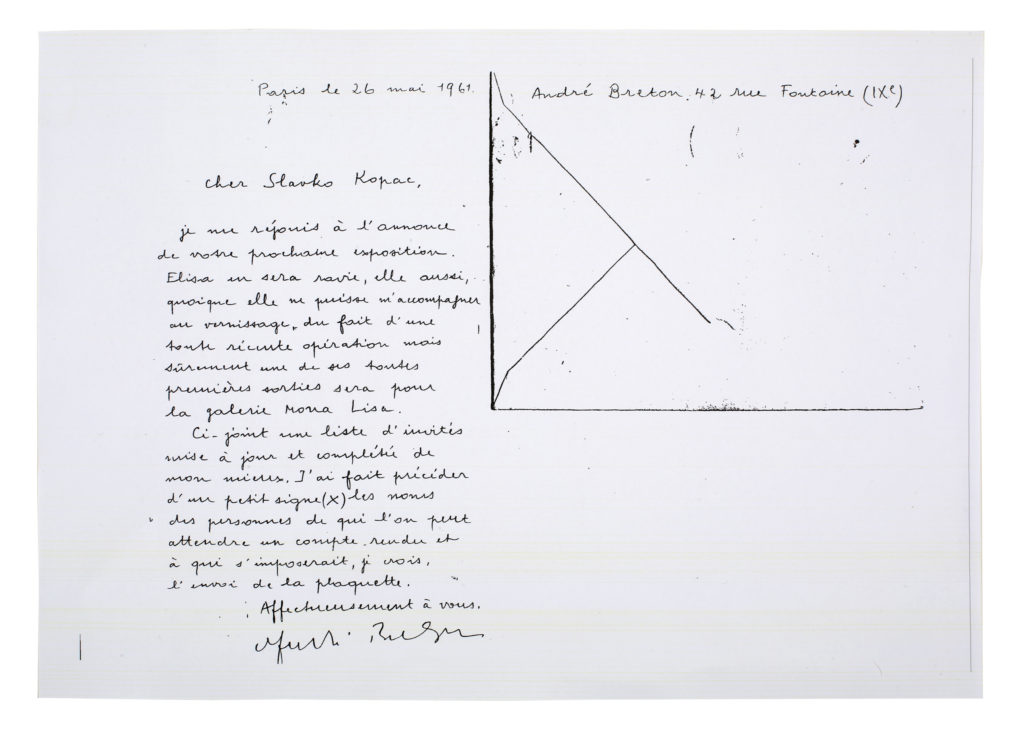 Paris le 26 mai 1961.
André Breton. 42 rue Fontaine (IXe)
cher Slavko Kopac,
je me réjouis à l'annonce
de votre prochaine exposition.
Elisa en sera ravie, elle aussi,
quoique elle ne puisse m'accompagner
au vernissage, du fait d'une
toute récente opération mais
sûrement une de ses toutes
premières sorties sera pour
la galerie Mona Lisa.
Ci-joint une liste d'invités
mise à jour et complétée de
mon mieux. J'ai fait précéder
d'un petit signe (x) les noms
des personnes de qui l'on peut
attendre un compte-rendu et
à qui s'imposerait, je crois,
l'envoi de la plaquette.
Affectueusement à vous.
André Breton